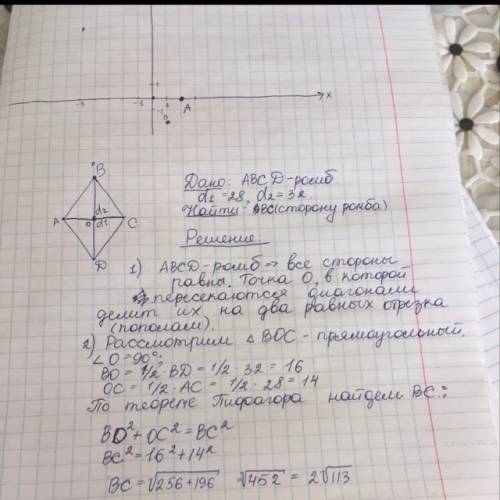 1
-5 -1 1 x
-1 A
B
Дано: ABCD-ромб.
d₁=28, d₂=32.
Найти: BC(сторону ромба)
d₂
A O d₁ C
Решение
D
1) ABCD-ромб ⇒ все стороны
равны. Точка O, в которой
пересекаются диагонали
делит их на два равных отрезка
(пополам).
2) Рассмотрим △ BOC - прямоугольный.
∠O=90°.
BO = 1/2 · BD = 1/2 · 32 = 16
OC = 1/2 · AC = 1/2 · 28 = 14
По теореме Пифагора найдем BC:
BO² + OC² = BC²
BC² = 16² + 14²
BC = √256+196 √452 = 2√113